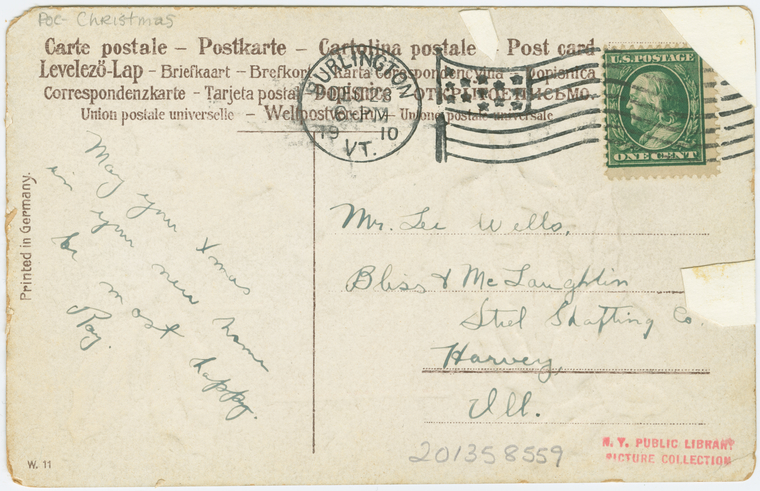 POC- Christmas
Carte postale – Postkarte – Cartolina postale – Post card
Levelező-Lap – Briefkaart – Brefkort – Karta Correspondencyjna – Dopisnica
Correspondenzkarte – Tarjeta postal – Dopisnice – ОТКРЫТОЕ ПИСЬМО.
Union postale universelle – Weltpostverein – Unione postale universale
BURLINGTON
DEC 23
6 - PM
1910
VT.
U.S. POSTAGE
ONE CENT
May your Xmas
in your new home
be most happy.
Ray.
Mr. Lee Wells,
Bliss & McLaughlin
Steel Shafting Co.
Harvey,
Ill.
Printed in Germany.
W. 11
201358559
N. Y. PUBLIC LIBRARY
PICTURE COLLECTION